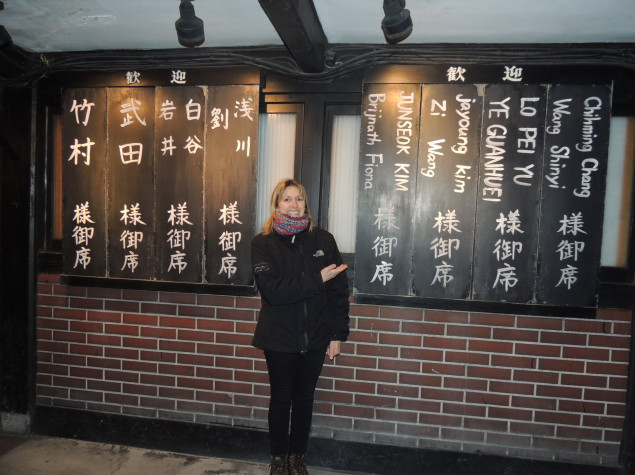 歡迎
Chihming Chang
Wang Shinyi
様御席
LO PEI YU
YE GUANHUEI
様御席
Jayoung kim
Zi Wang
様御席
JUNSEOK KIM
Brijnath Fiona
様御席
歡迎
浅川
劉
様御席
白谷
岩井
様御席
武田
様御席
竹村
様御席